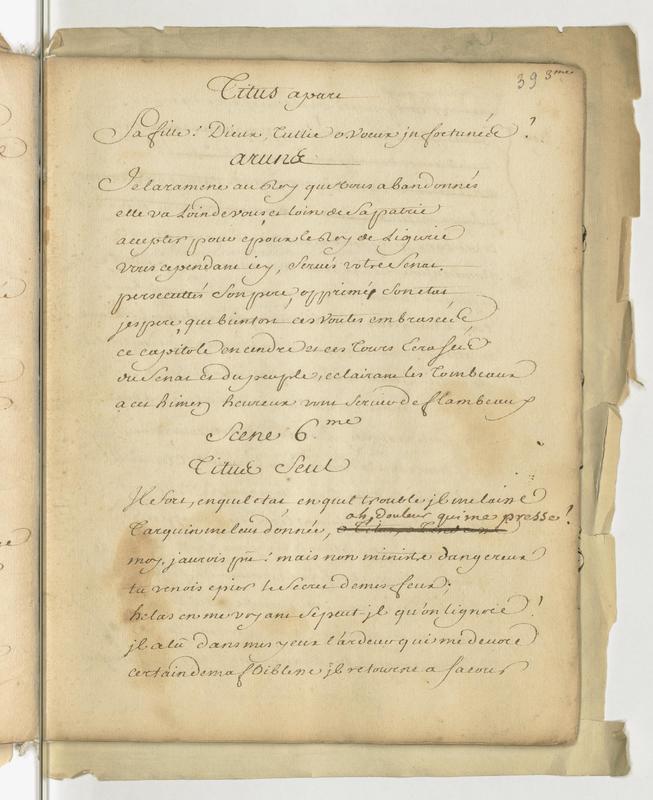 39 3me
Titus apart
Sa fille! Dieux, Tullie o voeux infortunés!
aruns
Je la ramene au Roy que vous abandonnés
elle va loin de vous et loin de sa patrie
accepter pour époux le Roy de Ligurie
vous cependant icy, servés votre senat,
persecuttés son pere, opprimés son etat
jespere que bientost ces voutes embrasées
ce capitole en cendre et ces tours ecrasées
du senat et du peuple, eclairant les tombeaux
a cet himen heureux vont servir de flambeaux
Scene 6.me
Titus Seul
Il sort, en quel etat en quel trouble jl me laisse
ah, douleur qui me presse!
Tarquin me leut donnée,
moy, jaurois pû! mais non ministre dangereux
tu venois epier le secret de mes feux;
helas en me voyant se peut-jl qu'on lignore!
jl a lû dans mes yeux l'ardeur qui me devore
certain de ma foiblesse jl retourne a sa cour